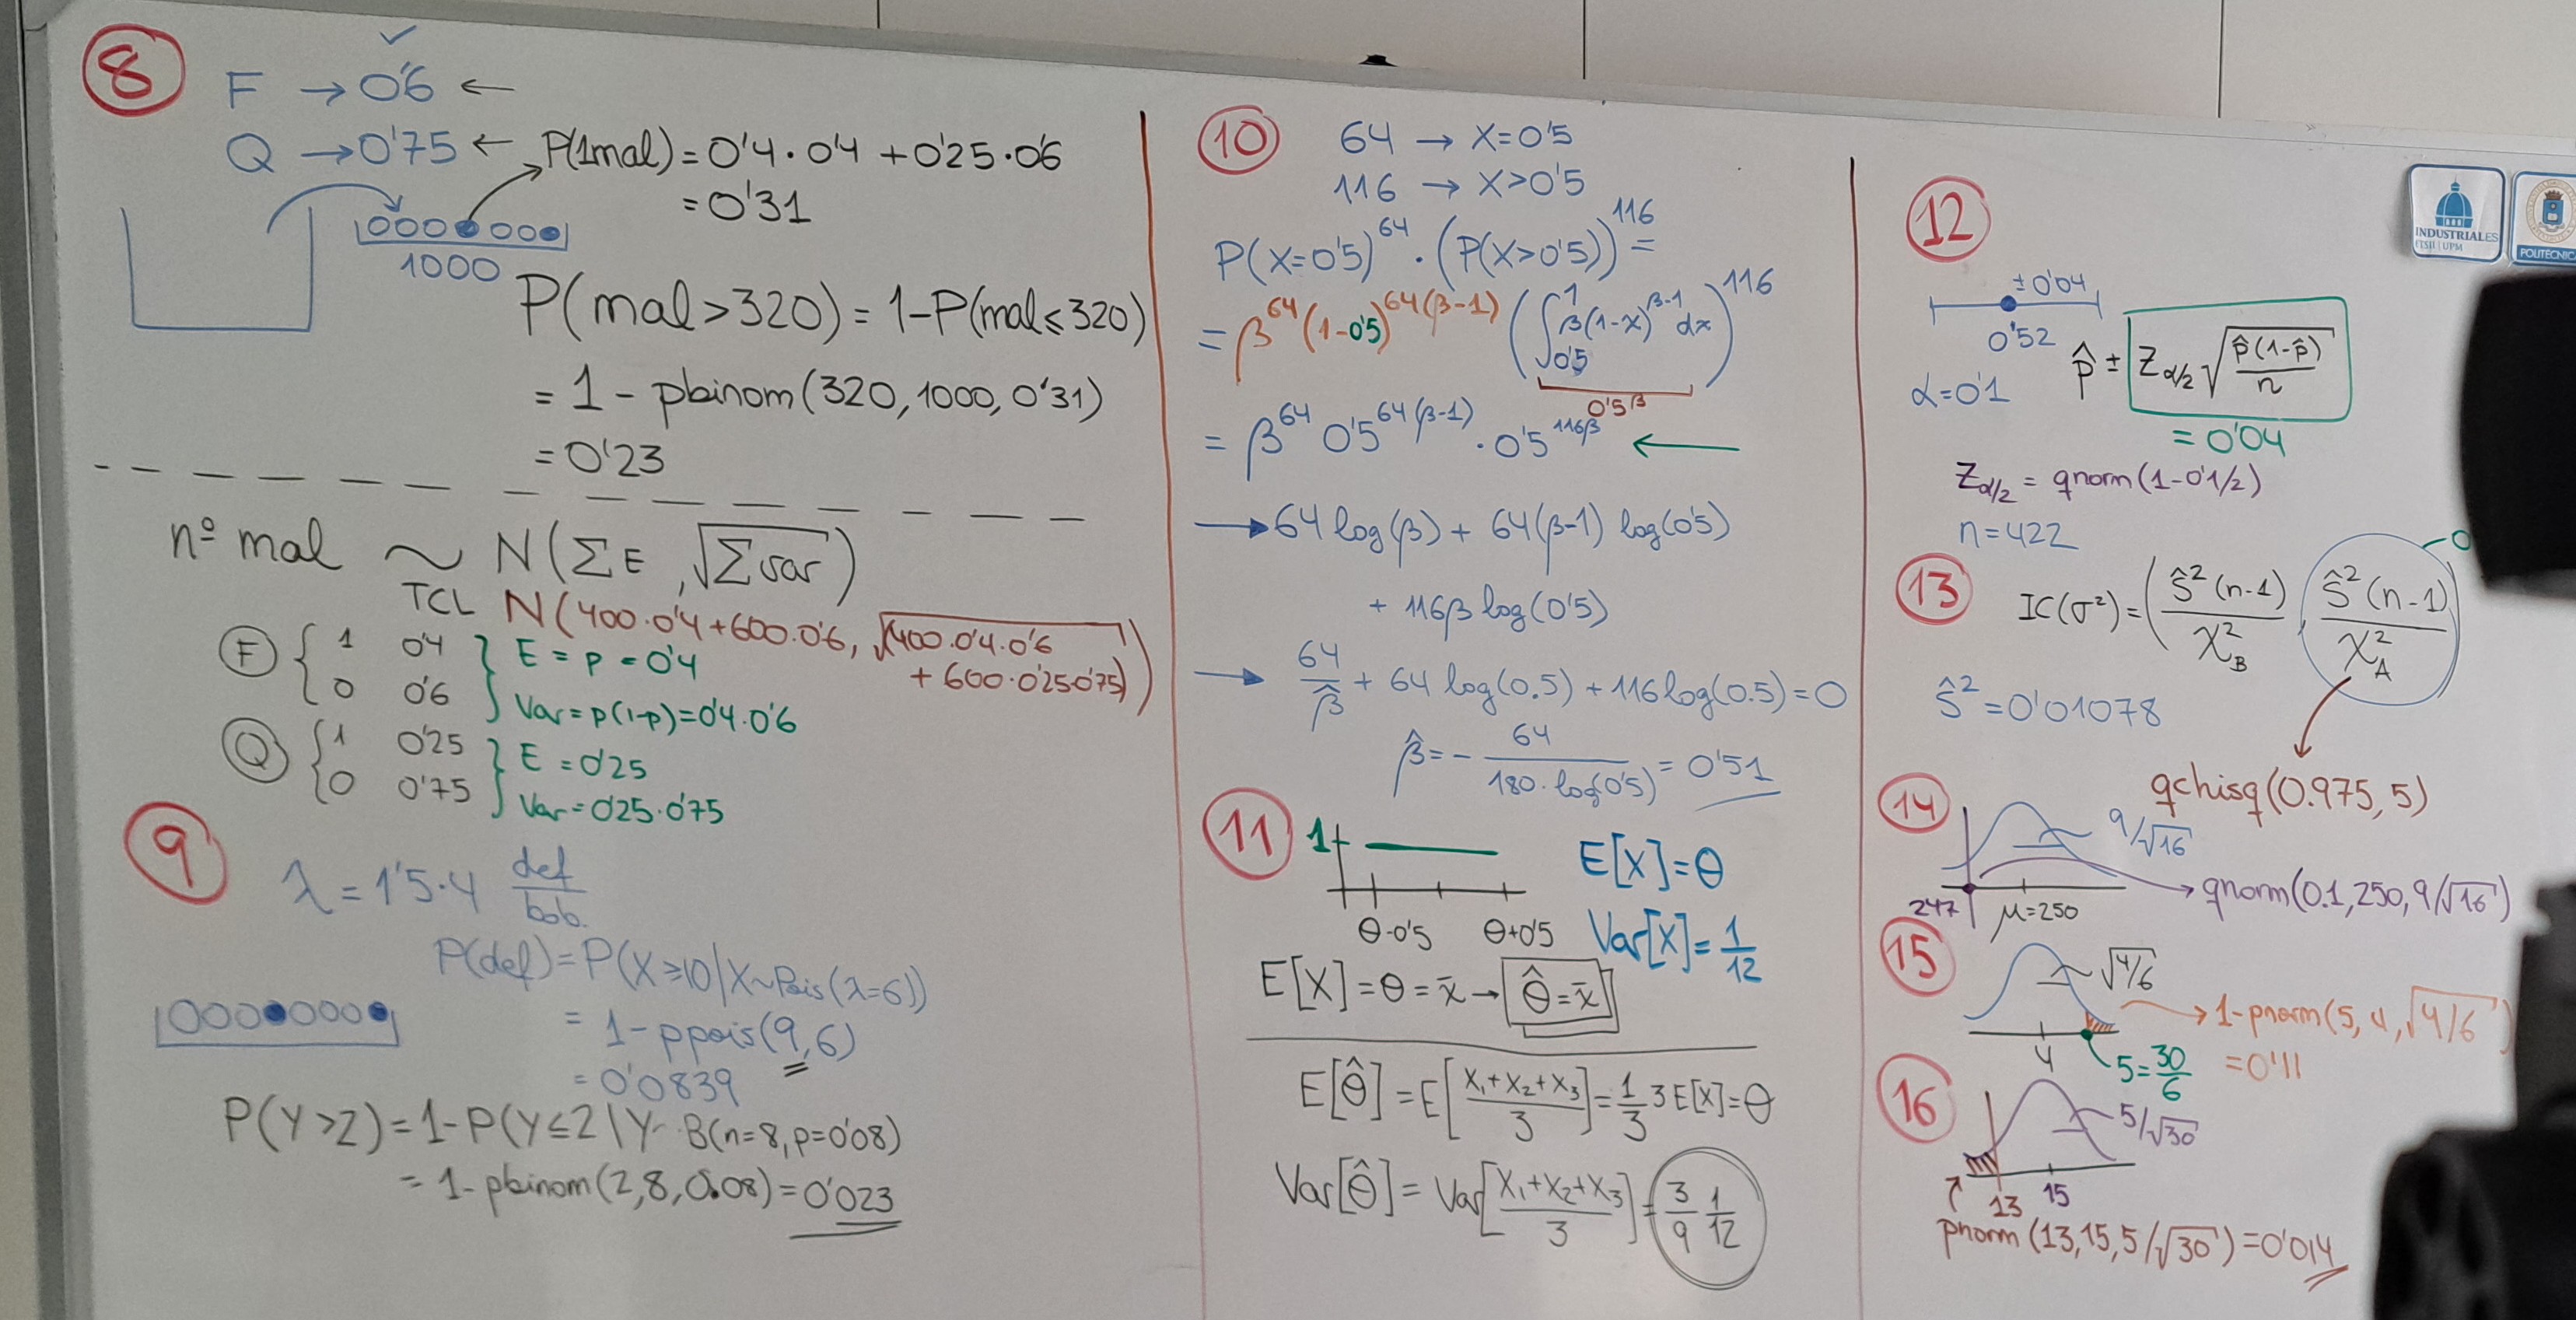 8
F → 0'6 ←
Q → 0'75 ← P(1mal) = 0'4·0'4 + 0'25·0'6
= 0'31
1000
P(mal > 320) = 1-P(mal ≤ 320)
= 1 - pbinom(320, 1000, 0'31)
= 0'23
nº mal ~ N(ΣE, √Σvar)
TCL N(400·0'4+600·0'6, √400·0'4·0'6
+ 600·0'25·0'75)
F { 1 0'4 } E = p = 0'4
0 0'6 Var = p(1-p) = 0'4·0'6
Q { 1 0'25 } E = 0'25
0 0'75 Var = 0'25·0'75
9
λ = 1'5·4 def/bob.
P(def) = P(X ≥ 10 | X~Pois(λ=6))
= 1 - ppois(9, 6)
= 0'0839
P(Y > 2) = 1-P(Y ≤ 2 | Y~B(n=8, p=0'08)
= 1- pbinom(2, 8, 0.08) = 0'023
10
64 → X=0'5
116 → X>0'5
P(X=0'5)^64 · (P(X>0'5))^116 =
= β^64 (1-0'5)^64(β-1) (∫_0'5^1 β(1-x)^β-1 dx)^116
0'5^β
= β^64 0'5^64(β-1) · 0'5^116β ←
→ 64 log(β) + 64(β-1) log(0'5)
+ 116β log(0'5)
→ 64/β̂ + 64 log(0.5) + 116 log(0.5) = 0
β̂ = - 64/(180·log(0'5)) = 0'51
11
1
θ-0'5 θ+0'5
E[X] = θ
Var[X] = 1/12
E[X] = θ = x̄ → θ̂ = x̄
E[θ̂] = E[(X₁+X₂+X₃)/3] = 1/3 3 E[X] = θ
Var[θ̂] = Var[(X₁+X₂+X₃)/3] = 3/9 1/12
12
±0'04
0'52
α = 0'1
p̂ ± Z_α/2 √(p̂(1-p̂)/n)
= 0'04
Z_α/2 = qnorm(1-0'1/2)
n = 422
13
IC(σ²) = (ŝ²(n-1)/χ²_B, ŝ²(n-1)/χ²_A
ŝ² = 0'01078
qchisq(0.975, 5)
14
9/√16
247 μ=250
qnorm(0.1, 250, 9/√16)
15
√4/6
4
5 = 30/6
1-pnorm(5, 4, √4/6)
= 0'11
16
5/√30
13 15
pnorm(13, 15, 5/√30) = 0'014
INDUSTRIALES
ETSII | UPM